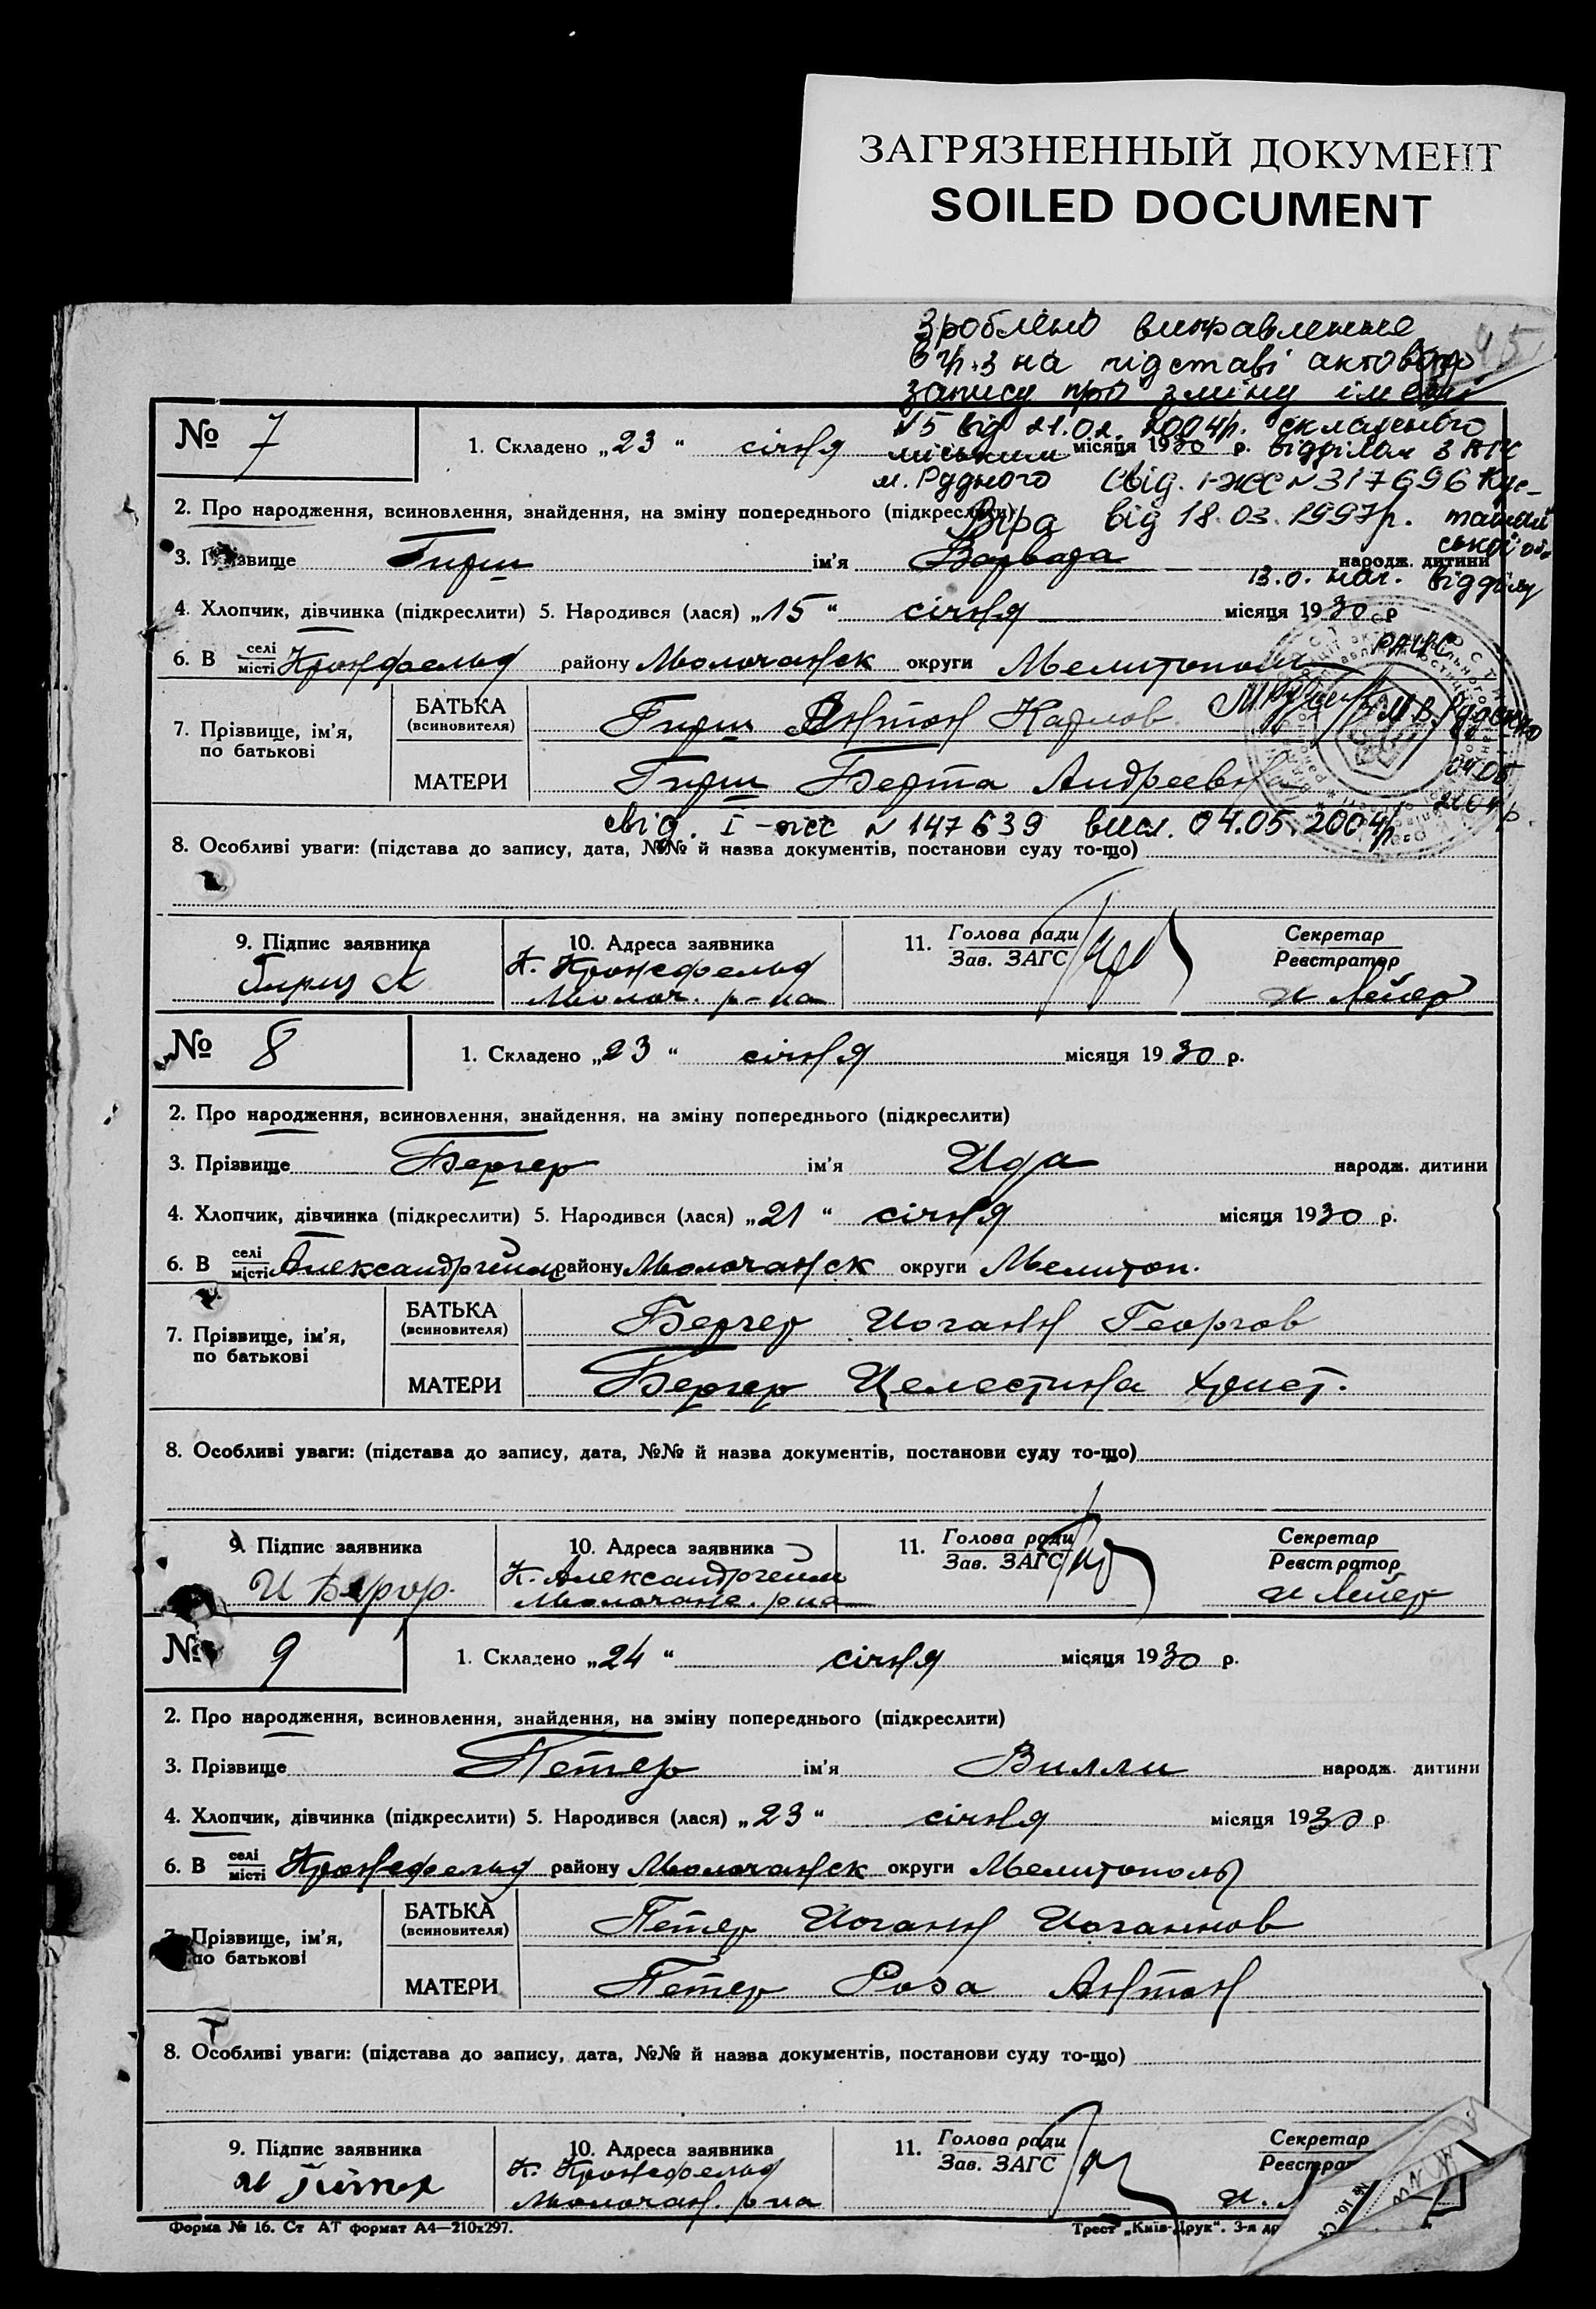 ЗАГРЯЗНЕННЫЙ ДОКУМЕНТ
SOILED DOCUMENT
Зроблено виправлення
в гр. 3 на підставі актового
запису про зміну імені
№5 від 21.02.2004р. складеного
міським відділом ЗАГС
м. Рудного
Свід. І-ЖС №317696
від 18.03.1997р.
Віра
В.о. нач. відділу
РАЦС
04.05
2004р.
№ 7
1. Складено „23“ січня місяця 1930 р.
2. Про народження, всиновлення, знайдення, на зміну попереднього (підкреслити)
3. Прізвище Гирш ім'я Варвара народж. дитини
4. Хлопчик, дівчинка (підкреслити) 5. Народився (лася) „15“ січня місяця 1930 р
6. В селі/місті Кронсфельд району Молочанск округи Мелитополь
7. Прізвище, ім'я, по батькові
БАТЬКА (всиновителя) Гирш Антон Карлов
МАТЕРИ Гирш Берта Андреевн
свід. І-жс №147639 вид. 04.05.2004р.
8. Особливі уваги: (підстава до запису, дата, №№ й назва документів, постанови суду то-що)
9. Підпис заявника
10. Адреса заявника
11. Голова ради
Зав. ЗАГС
Секретар
Реєстратор
Гирш А
К. Кронсфельд
Молоч. р-на
И Лейер
№ 8
1. Складено „23“ січня місяця 1930 р.
2. Про народження, всиновлення, знайдення, на зміну попереднього (підкреслити)
3. Прізвище Бергер ім'я Ида народж. дитини
4. Хлопчик, дівчинка (підкреслити) 5. Народився (лася) „21“ січня місяця 1930 р.
6. В селі/місті Александргейм району Молочанск округи Мелитоп.
7. Прізвище, ім'я, по батькові
БАТЬКА (всиновителя) Бергер Иоганн Георгов
МАТЕРИ Бергер Целестина Христ.
8. Особливі уваги: (підстава до запису, дата, №№ й назва документів, постанови суду то-що)
9. Підпис заявника
10. Адреса заявника
11. Голова ради
Зав. ЗАГС
Секретар
Реєстратор
К. Александргейм
Молочанс. р-на
И Лейер
№ 9
1. Складено „24“ січня місяця 1930 р.
2. Про народження, всиновлення, знайдення, на зміну попереднього (підкреслити)
3. Прізвище Петер ім'я Вилли народж. дитини
4. Хлопчик, дівчинка (підкреслити) 5. Народився (лася) „23“ січня місяця 1930 р
6. В селі/місті Кронсфельд району Молочанск округи Мелитополь
7. Прізвище, ім'я, по батькові
БАТЬКА (всиновителя) Петер Иоганн Иоганнов
МАТЕРИ Петер Роза Антон
8. Особливі уваги: (підстава до запису, дата, №№ й назва документів, постанови суду то-що)
9. Підпис заявника
10. Адреса заявника
11. Голова ради
Зав. ЗАГС
Секретар
К. Кронсфельд
Молочан. р-на
Форма № 16. Ст АТ формат А4—210х297.
Трест „Київ-Друк“. 3-я